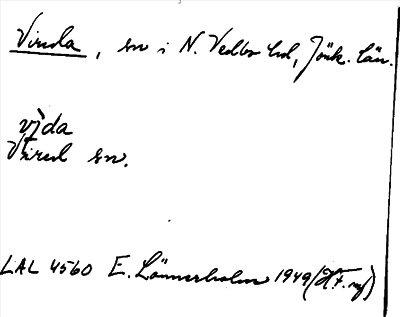 Vireda, sn i N. Vedbo hd, Jönk. län.
vı̀da
Vired sn.
LAL 4560 E. Lönnerholm 1949 (Hf. uf)